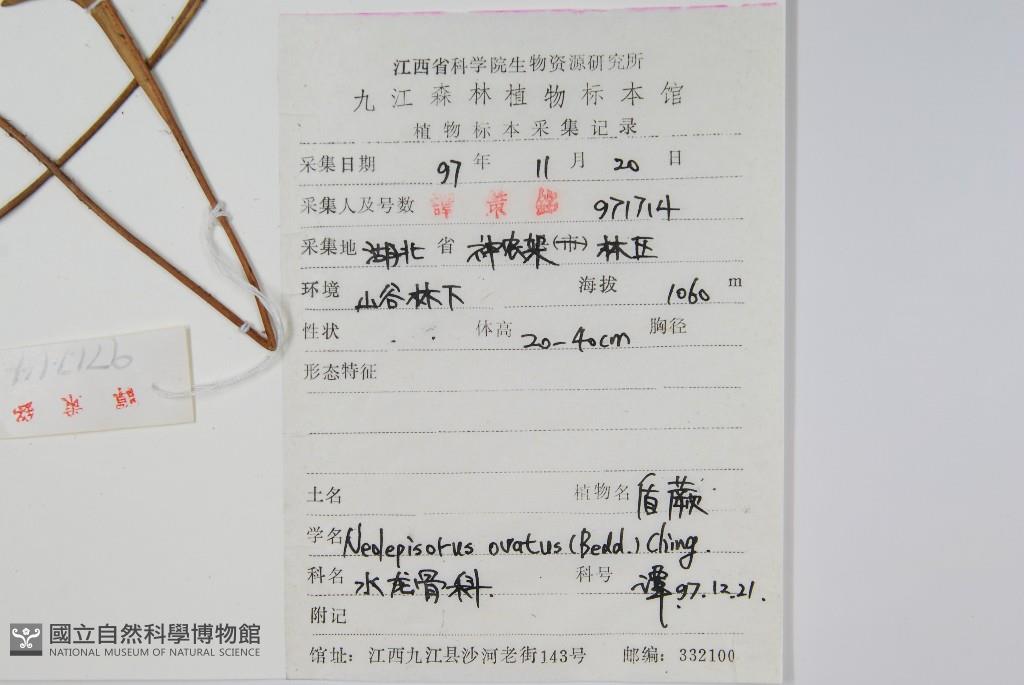 江西省科学院生物资源研究所
九江森林植物标本馆
植物标本采集记录
采集日期 97 年 11 月 20 日
采集人及号数 譚策銘 971714
采集地 湖北 省 神农架(市) 林区
环境 山谷林下 海拔 1060 m
性状 体高 20-40cm 胸径
形态特征
土名 植物名 盾蕨
学名 Neolepisorus ovatus (Bedd.) Ching.
科名 水龙骨科. 科号 谭97.12.21.
附记
馆址: 江西九江县沙河老街143号 邮编: 332100
971714
譚策銘
國立自然科學博物館
NATIONAL MUSEUM OF NATURAL SCIENCE